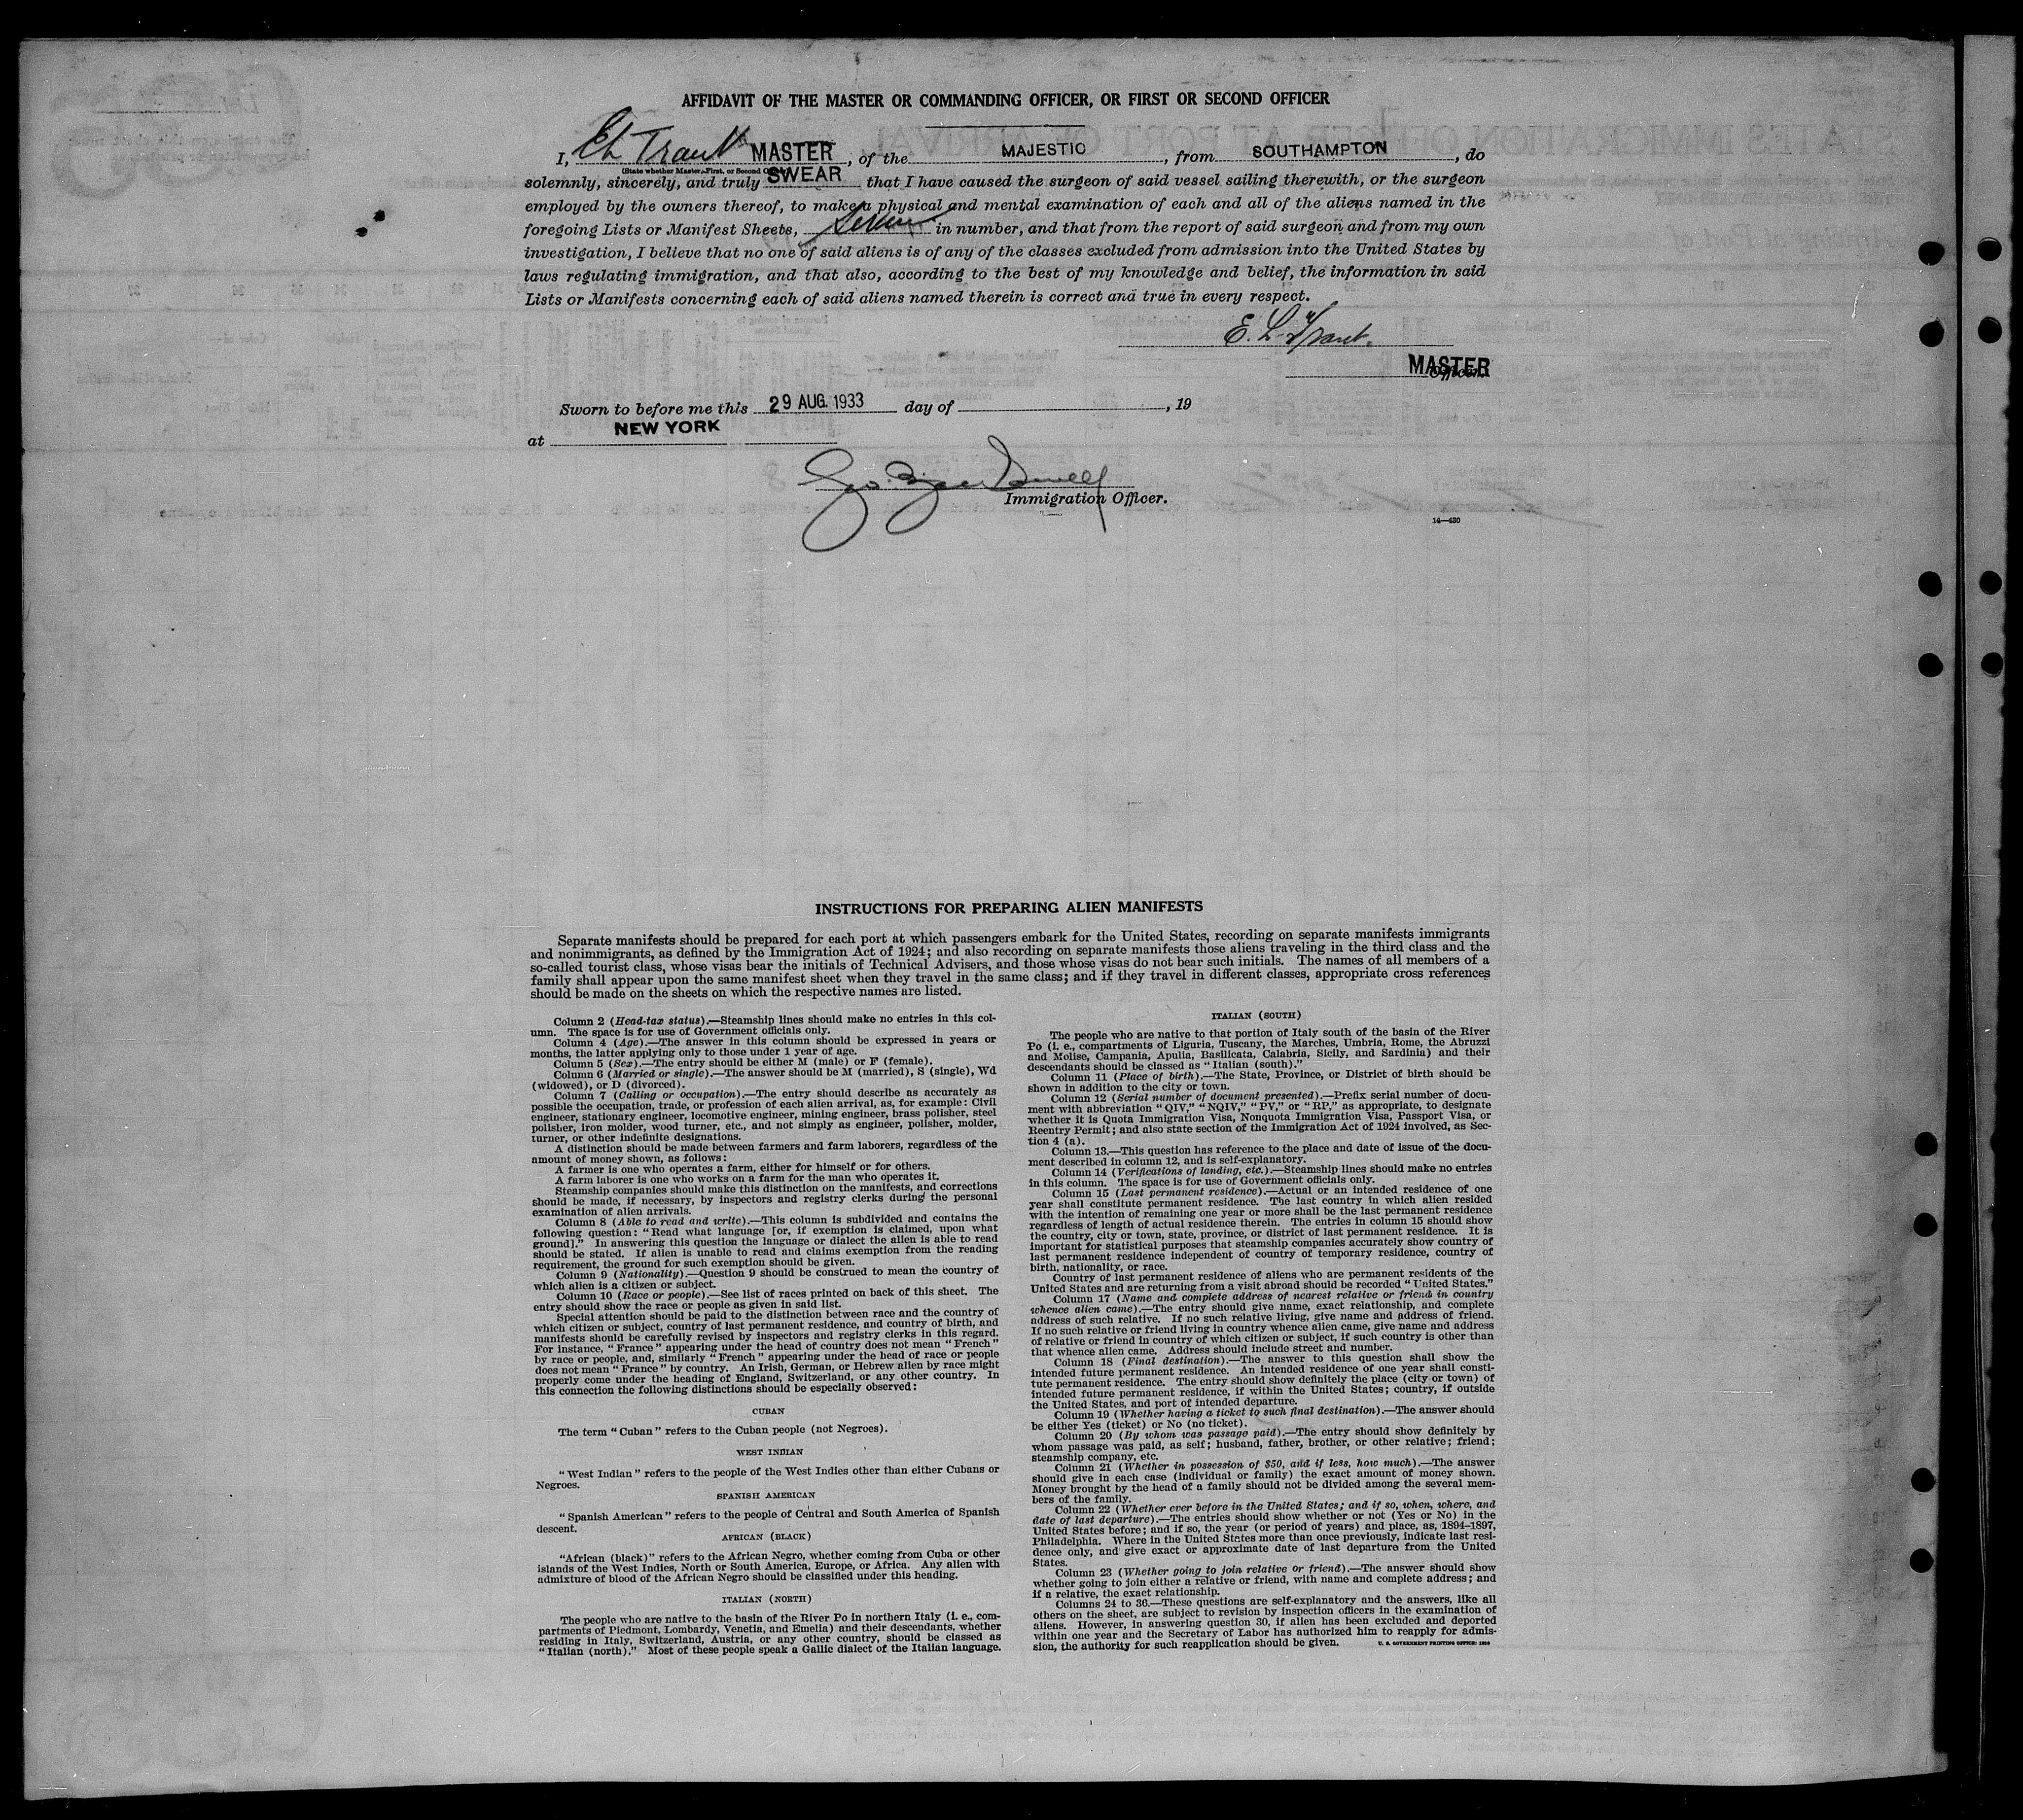 AFFIDAVIT OF THE MASTER OR COMMANDING OFFICER, OR FIRST OR SECOND OFFICER
I, MASTER, of the MAJESTIC, from SOUTHAMPTON, do
(State whether Master, First, or Second
solemnly, sincerely, and truly SWEAR that I have caused the surgeon of said vessel sailing therewith, or the surgeon
employed by the owners thereof, to make a physical and mental examination of each and all of the aliens named in the
foregoing Lists or Manifest Sheets, in number, and that from the report of said surgeon and from my own
investigation, I believe that no one of said aliens is of any of the classes excluded from admission into the United States by
laws regulating immigration, and that also, according to the best of my knowledge and belief, the information in said
Lists or Manifests concerning each of said aliens named therein is correct and true in every respect.
E. L. Trant.
MASTER
Officer.
Sworn to before me this 29 AUG. 1933 day of , 19
at NEW YORK
Immigration Officer.
14—430
INSTRUCTIONS FOR PREPARING ALIEN MANIFESTS
Separate manifests should be prepared for each port at which passengers embark for the United States, recording on separate manifests immigrants
and nonimmigrants, as defined by the Immigration Act of 1924; and also recording on separate manifests those aliens traveling in the third class and the
so-called tourist class, whose visas bear the initials of Technical Advisers, and those whose visas do not bear such initials. The names of all members of a
family shall appear upon the same manifest sheet when they travel in the same class; and if they travel in different classes, appropriate cross references
should be made on the sheets on which the respective names are listed.
Column 2 (Head-tax status).—Steamship lines should make no entries in this col-
umn. The space is for use of Government officials only.
Column 4 (Age).—The answer in this column should be expressed in years or
months, the latter applying only to those under 1 year of age.
Column 5 (Sex).—The entry should be either M (male) or F (female).
Column 6 (Married or single).—The answer should be M (married), S (single), Wd
(widowed), or D (divorced).
Column 7 (Calling or occupation).—The entry should describe as accurately as
possible the occupation, trade, or profession of each alien arrival, as, for example: Civil
engineer, stationary engineer, locomotive engineer, mining engineer, brass polisher, steel
polisher, iron molder, wood turner, etc., and not simply as engineer, polisher, molder,
turner, or other indefinite designations.
A distinction should be made between farmers and farm laborers, regardless of the
amount of money shown, as follows:
A farmer is one who operates a farm, either for himself or for others.
A farm laborer is one who works on a farm for the man who operates it.
Steamship companies should make this distinction on the manifests, and corrections
should be made, if necessary, by inspectors and registry clerks during the personal
examination of alien arrivals.
Column 8 (Able to read and write).—This column is subdivided and contains the
following question: "Read what language [or, if exemption is claimed, upon what
ground]." In answering this question the language or dialect the alien is able to read
should be stated. If alien is unable to read and claims exemption from the reading
requirement, the ground for such exemption should be given.
Column 9 (Nationality).—Question 9 should be construed to mean the country of
which alien is a citizen or subject.
Column 10 (Race or people).—See list of races printed on back of this sheet. The
entry should show the race or people as given in said list.
Special attention should be paid to the distinction between race and the country of
which citizen or subject, country of last permanent residence, and country of birth, and
manifests should be carefully revised by inspectors and registry clerks in this regard.
For instance, "France" appearing under the head of country does not mean "French"
by race or people, and, similarly "French" appearing under the head of race or people
does not mean "France" by country. An Irish, German, or Hebrew alien by race might
properly come under the heading of England, Switzerland, or any other country. In
this connection the following distinctions should be especially observed:
CUBAN
The term "Cuban" refers to the Cuban people (not Negroes).
WEST INDIAN
"West Indian" refers to the people of the West Indies other than either Cubans or
Negroes.
SPANISH AMERICAN
"Spanish American" refers to the people of Central and South America of Spanish
descent.
AFRICAN (BLACK)
"African (black)" refers to the African Negro, whether coming from Cuba or other
islands of the West Indies, North or South America, Europe, or Africa. Any alien with
admixture of blood of the African Negro should be classified under this heading.
ITALIAN (NORTH)
The people who are native to the basin of the River Po in northern Italy (i. e., com-
partments of Piedmont, Lombardy, Venetia, and Emelia) and their descendants, whether
residing in Italy, Switzerland, Austria, or any other country, should be classed as
"Italian (north)." Most of these people speak a Gallic dialect of the Italian language.
ITALIAN (SOUTH)
The people who are native to that portion of Italy south of the basin of the River
Po (i. e., compartments of Liguria, Tuscany, the Marches, Umbria, Rome, the Abruzzi
and Molise, Campania, Apulia, Basilicata, Calabria, Sicily, and Sardinia) and their
descendants should be classed as "Italian (south)."
Column 11 (Place of birth).—The State, Province, or District of birth should be
shown in addition to the city or town.
Column 12 (Serial number of document presented).—Prefix serial number of docu-
ment with abbreviation "QIV," "NQIV," "PV," or "RP," as appropriate, to designate
whether it is Quota Immigration Visa, Nonquota Immigration Visa, Passport Visa, or
Reentry Permit; and also state section of the Immigration Act of 1924 involved, as Sec-
tion 4 (a).
Column 13.—This question has reference to the place and date of issue of the docu-
ment described in column 12, and is self-explanatory.
Column 14 (Verifications of landing, etc.).—Steamship lines should make no entries
in this column. The space is for use of Government officials only.
Column 15 (Last permanent residence).—Actual or an intended residence of one
year shall constitute permanent residence. The last country in which alien resided
with the intention of remaining one year or more shall be the last permanent residence
regardless of length of actual residence therein. The entries in column 15 should show
the country, city or town, state, province, or district of last permanent residence. It is
important for statistical purposes that steamship companies accurately show country of
last permanent residence independent of country of temporary residence, country of
birth, nationality, or race.
Country of last permanent residence of aliens who are permanent residents of the
United States and are returning from a visit abroad should be recorded "United States."
Column 17 (Name and complete address of nearest relative or friend in country
whence alien came).—The entry should give name, exact relationship, and complete
address of such relative. If no such relative living, give name and address of friend.
If no such relative or friend living in country whence alien came, give name and address
of relative or friend in country of which citizen or subject, if such country is other than
that whence alien came. Address should include street and number.
Column 18 (Final destination).—The answer to this question shall show the
intended future permanent residence. An intended residence of one year shall consti-
tute permanent residence. The entry should show definitely the place (city or town) of
intended future permanent residence, if within the United States; country, if outside
the United States, and port of intended departure.
Column 19 (Whether having a ticket to such final destination).—The answer should
be either Yes (ticket) or No (no ticket).
Column 20 (By whom was passage paid).—The entry should show definitely by
whom passage was paid, as self; husband, father, brother, or other relative; friend;
steamship company, etc.
Column 21 (Whether in possession of $50, and if less, how much).—The answer
should give in each case (individual or family) the exact amount of money shown.
Money brought by the head of a family should not be divided among the several mem-
bers of the family.
Column 22 (Whether ever before in the United States; and if so, when, where, and
date of last departure).—The entries should show whether or not (Yes or No) in the
United States before; and if so, the year (or period of years) and place, as, 1894–1897,
Philadelphia. Where in the United States more than once previously, indicate last resi-
dence only, and give exact or approximate date of last departure from the United
States.
Column 23 (Whether going to join relative or friend).—The answer should show
whether going to join either a relative or friend, with name and complete address; and
if a relative, the exact relationship.
Columns 24 to 36.—These questions are self-explanatory and the answers, like all
others on the sheet, are subject to revision by inspection officers in the examination of
aliens. However, in answering question 30, if alien has been excluded and deported
within one year and the Secretary of Labor has authorized him to reapply for admis-
sion, the authority for such reapplication should be given.
U. S. GOVERNMENT PRINTING OFFICE: